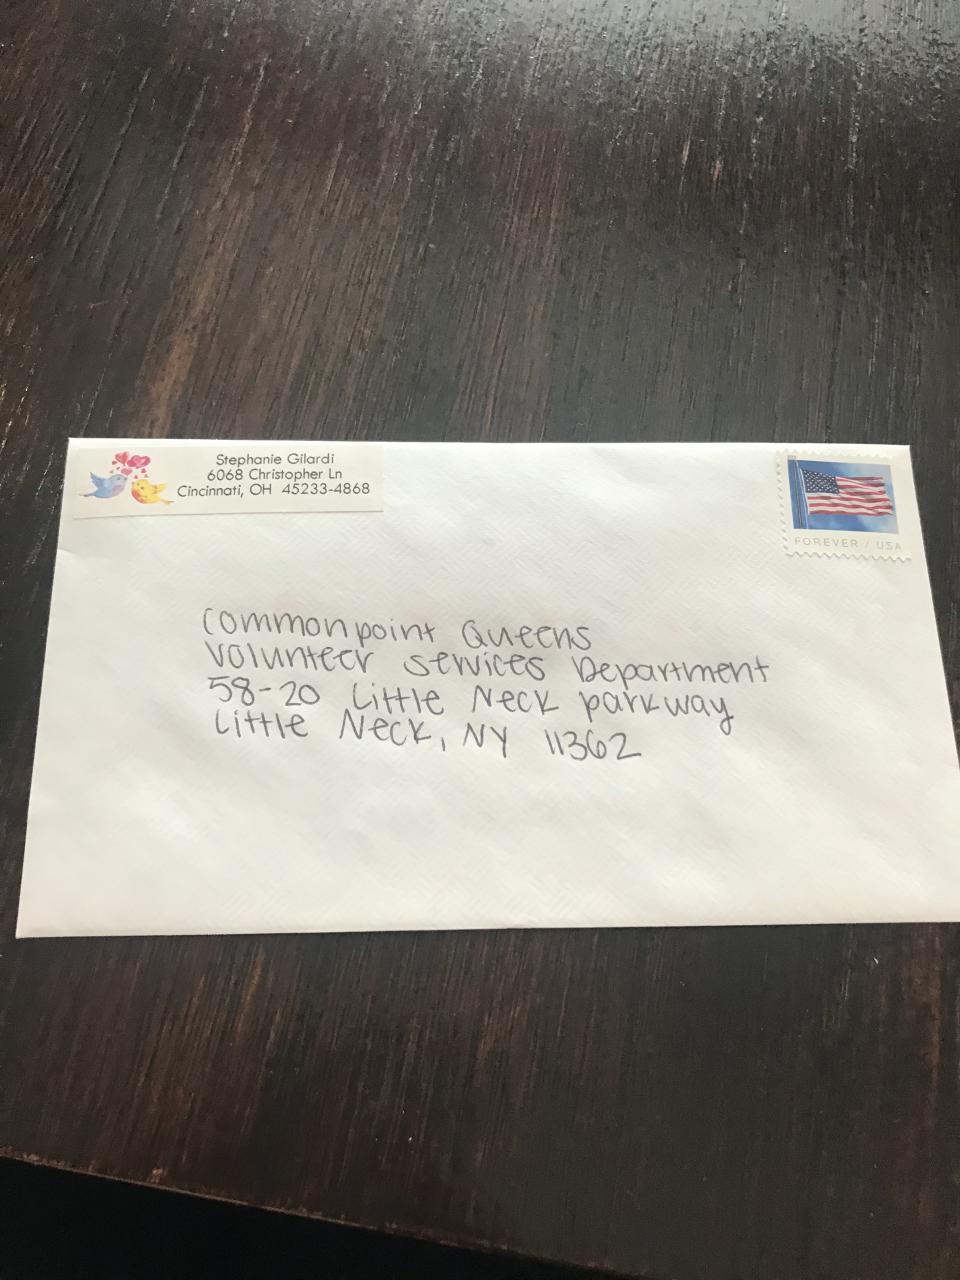 Stephanie Gilardi
6068 Christopher Ln
Cincinnati, OH 45233-4868
FOREVER / USA
Commonpoint Queens
Volunteer Services Department
58-20 Little Neck Parkway
Little Neck, NY 11362